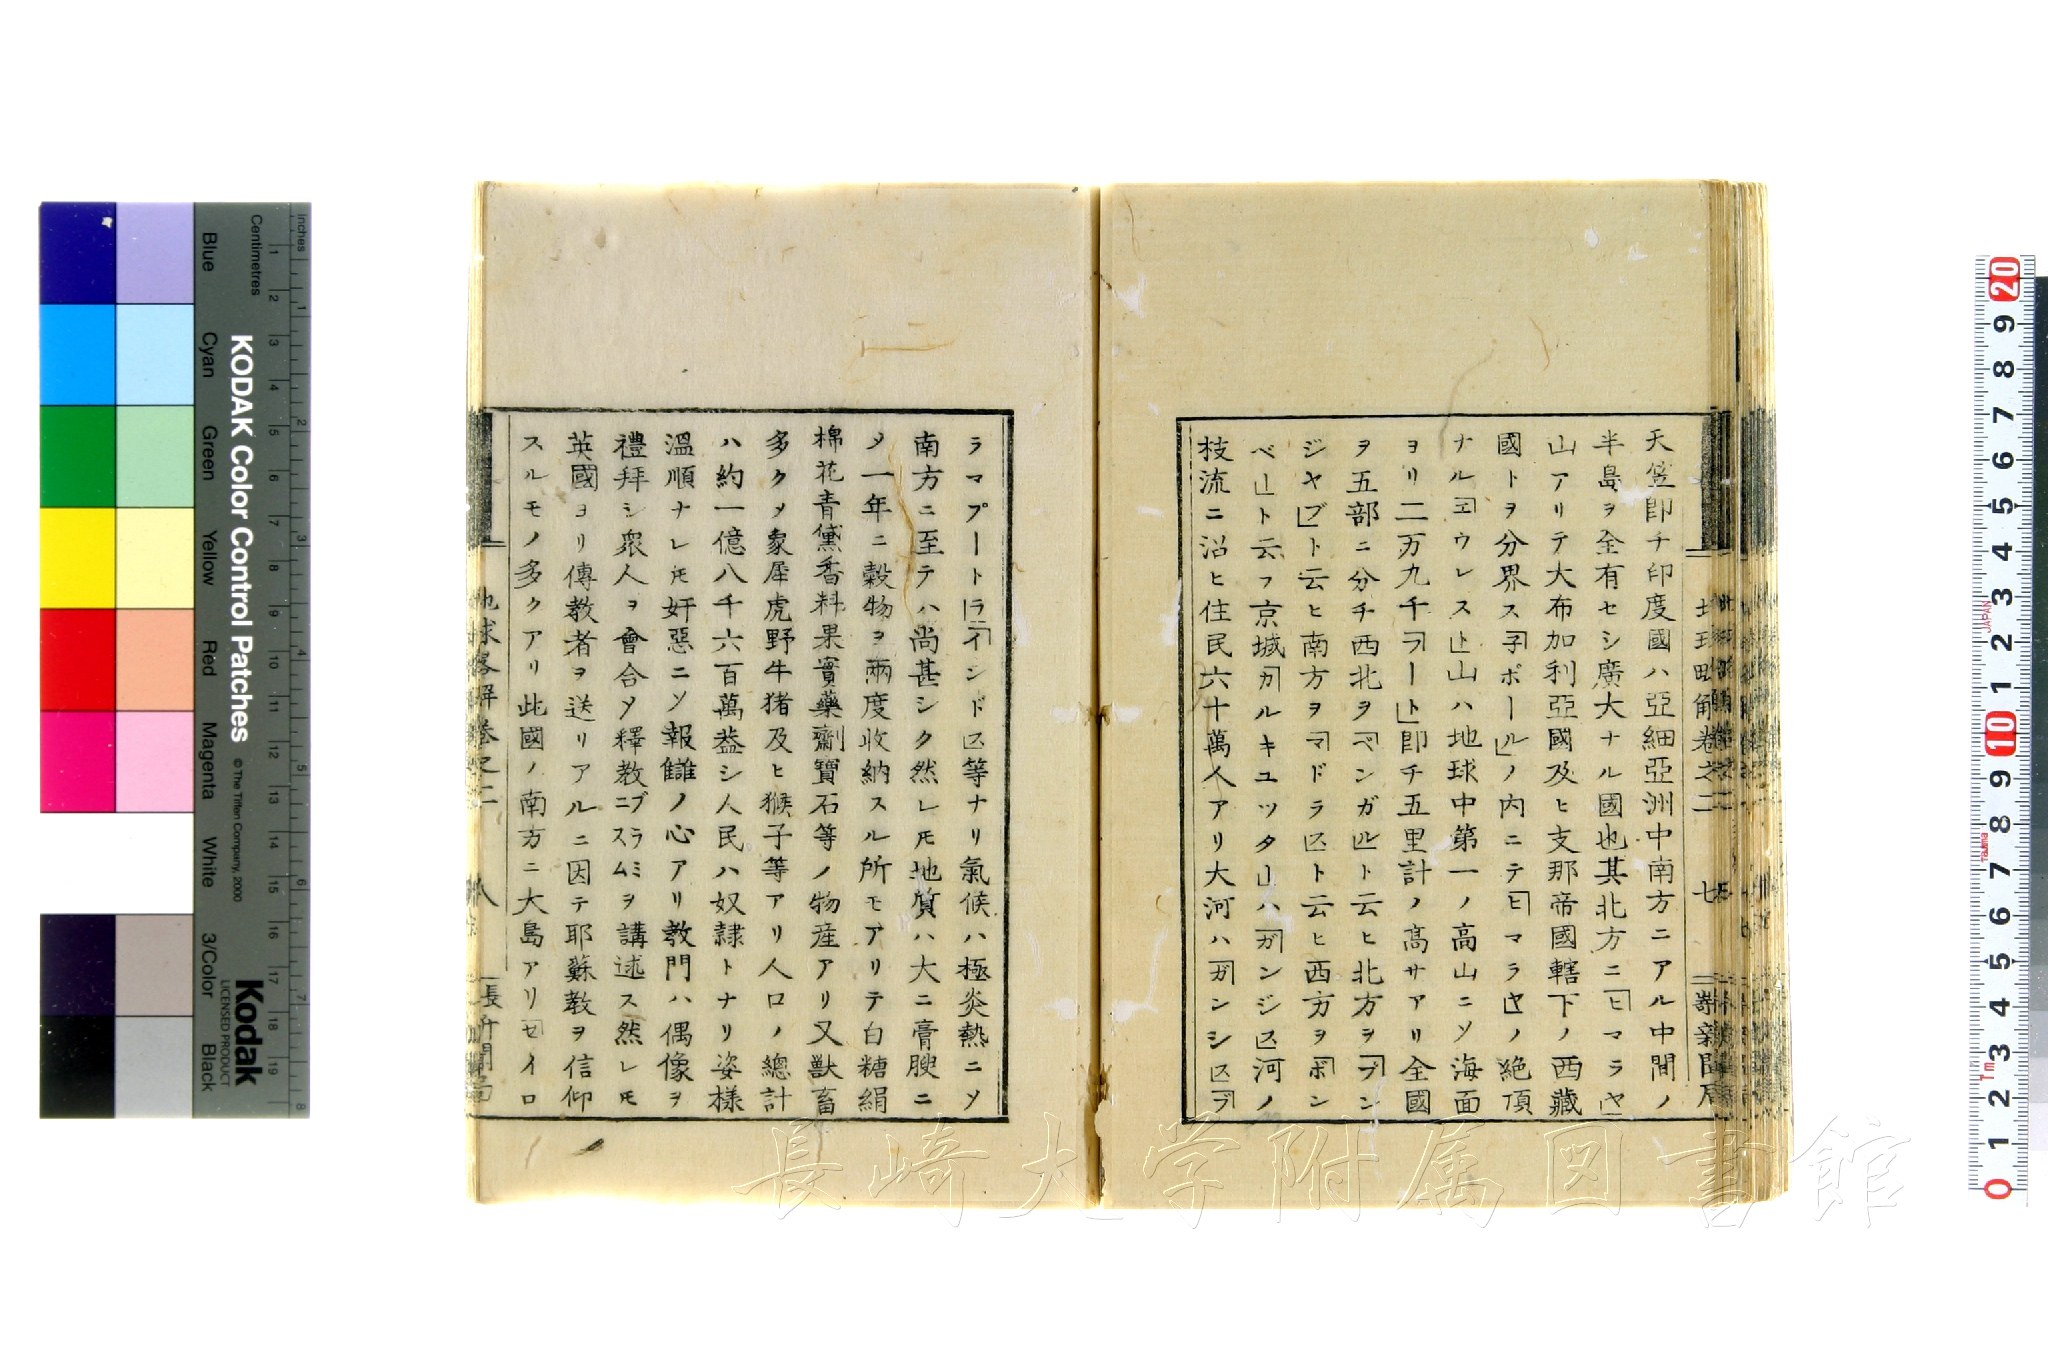 天竺即チ印度國ハ亞細亞洲中南方ニアル中間ノ
半島ヲ全有セシ廣大ナル國也其北方ニ「ヒマラヤ」
山アリテ大布加利亞國及ヒ支那帝國轄下ノ西藏
國トヲ分界ス「子ポール」ノ内ニテ「ヒマラヤ」ノ絶頂
ナル「ヱウレスト」山ハ地球中第一ノ高山ニソ海面
ヨリ二万九千「フート」即チ五里計ノ高サアリ全國
ヲ五部ニ分チ西北ヲ「ベンガル」ト云ヒ北方ヲ「プン
ジヤブ」ト云ヒ南方ヲ「マドラス」ト云ヒ西方ヲ「ボン
ベー」ト云フ京城「カルキユツタ」ハ「ガンジス」河ノ
枝流ニ沿ヒ住民六十萬人アリ大河ハ「ガンシス」「ブ
ラマプートラ」「インドス」等ナリ氣候ハ極炎熱ニソ
南方ニ至テハ尚甚シク然レ𪜈地質ハ大ニ膏腴ニ
〆一年ニ穀物ヲ兩度收納スル所モアリテ白糖絹
棉花青黛香料果實藥劑寶石等ノ物産アリ又獸畜
多ク〆象犀虎野牛猪及ヒ猴子等アリ人口ノ總計
ハ約一億八千六百萬蓋シ人民ハ奴隷トナリ姿様
溫順ナレ𪜈奸惡ニソ報讎ノ心アリ教門ハ偶像ヲ
禮拜シ衆人ヲ會合〆釋教ニブラミスムヲ講述ス然レ𪜈
英國ヨリ傳教者ヲ送リアルニ因テ耶蘇教ヲ信仰
スルモノ多クアリ此國ノ南方ニ大島アリ「セイロ
地球畧解卷之二
八
七
長崎大学附属図書館
KODAK Color Control Patches
© The Tiffen Company, 2000
Kodak
LICENSED PRODUCT
Inches
Centimetres
Blue
Cyan
Green
Yellow
Red
Magenta
White
3/Color
Black